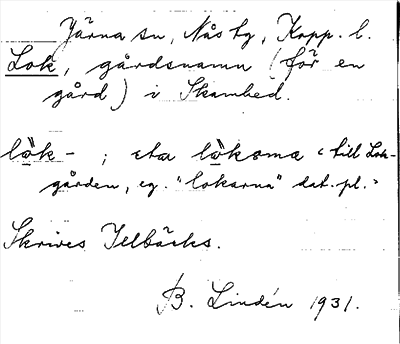 Järna sn, Nås tg, Kopp. l.
Lok, gårdsnamn (för en
gård) i Skamhed.
lòk- ; lòkoma "till Lok-
gården, eg. "lokarna" dat. pl."
Skrives Jelbäcks.
B. Lindén 1931.